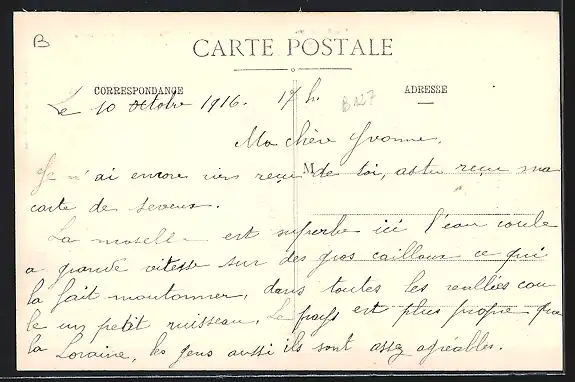 B
CARTE POSTALE
CORRESPONDANCE
ADRESSE
Le 10 octobre 1916. 17 h.
B127
Ma chère Yvonne,
M
Je n'ai encore rien reçu de toi, as tu reçu ma
carte de
La moselle est superbe ici l'eau coule
a grande vitesse sur des gros cailloux ce qui
la fait moutonner, dans toutes les vallées cou
le un petit ruisseau. Le pays est plus propre que
la Loraine, les gens aussi ils sont assez agréables.